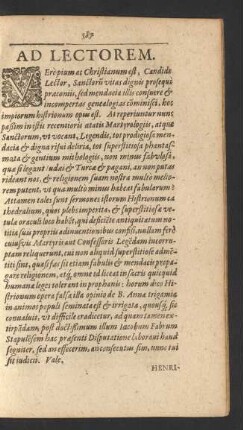 387
AD LECTOREM.
VEre pium ac Christianum est, Candide
Lector, Sanctorū vitas dignis prosequi
præconijs, sed mendacia illis consuere &
incompertas genealogias comminisci, hoc
impiorum histrionum opus est. At reperiuntur nunc
passim in istis recentioris ætatis Martyrologijs, atque
Sanctorum, vt vocant, Legendis, tot prodigiosa men-
dacia & digna risui deliria, tot superstitiosa phantas-
mata & gentium mithologijs, non minus fabulosa,
quæ si legant Iudæi & Turcæ & pagani, an non putas
rideant nos, & religionem suam nostra multo meli-
orem putent, vt qua multò minus habeat fabularum?
Attamen tales sunt sermones istorum Histrionum ex
cathedratum, quos plebs imperita, & superstitiosa ve-
pula oraculi loco habet, qui despectis antiquitatum no-
titia suis proprijs adinuentionibus confisi, nullam fere
cuiusq; Martyris aut Confessoris Legendam incorru-
ptam reliquerunt, cui non aliquid superstitiose addi-
ti sit, quasi fas sit etiam fabulis & mendacio propa-
gare religionem, atq́; omne id liceat in sacris quicquid
humanæ leges tolerant in prophanis: horum dico Hi-
strionum opera falsa illa opinio de B. Anna trigamia
in animos populi seminata est & irrigata, quousq́; sic
conualuit, vt difficile eradicetur, ad quam tamen ex-
tirpandam, post doctissimum illum Iacobum Fabrum
Stapulissem hac præsenti Disputatione laboraui haud
segniter, sed an effecerim, anconsecutus sim, nunc tui
sit iudicij. Vale.
HENRI-